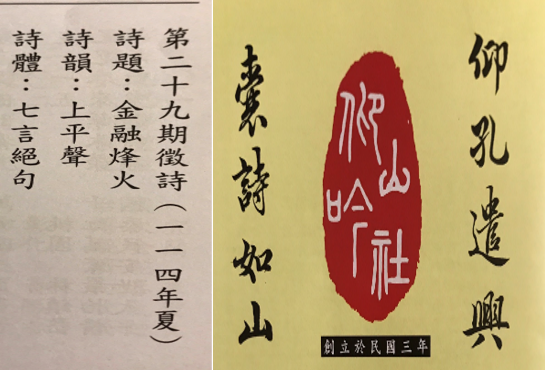 第二十九期徵詩（一一四年夏）
詩題：金融烽火
詩韻：上平聲
詩體：七言絕句
仰孔遣興
仰山吟社
囊詩如山
創立於民國三年